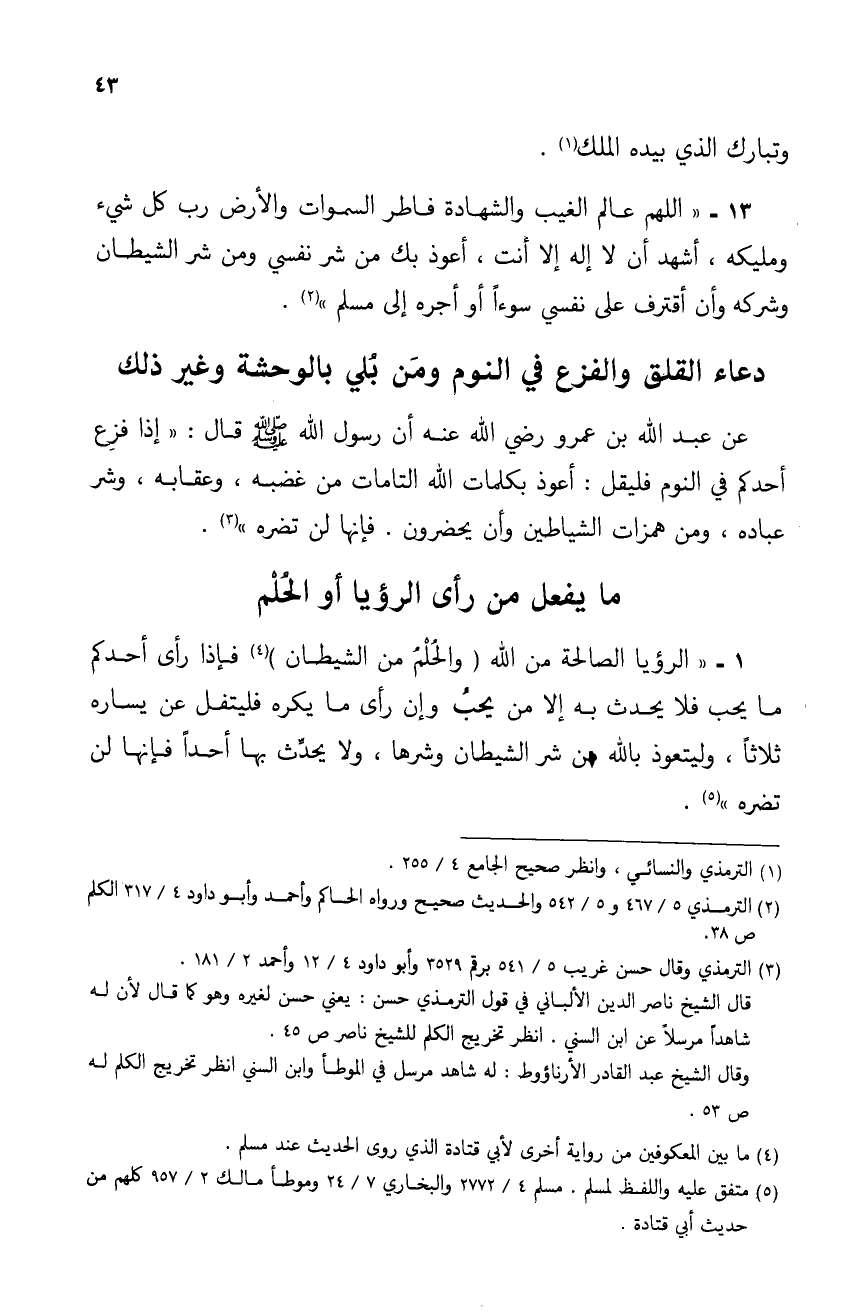 ٤٣
وتبارك الذي بيده الملك(١) .
١٣ ـ « اللهم عالم الغيب والشهادة فاطر السموات والأرض رب كل شيء
ومليكه ، أشهد أن لا إله إلا أنت ، أعوذ بك من شر نفسي ومن شر الشيطان
وشركه وأن أقترف على نفسي سوءاً أو أجره إلى مسلم »(٢) .
دعاء القلق والفزع في النوم ومَن بُلي بالوحشة وغير ذلك
عن عبد الله بن عمرو رضي الله عنه أن رسول الله ﷺ قال : « إذا فزِع
أحدكم في النوم فليقل : أعوذ بكلمات الله التامات من غضبه ، وعقابه ، وشر
عباده ، ومن همزات الشياطين وأن يحضرون . فإنها لن تضره »(٣) .
ما يفعل من رأى الرؤيا أو الحُلْم
١ ـ « الرؤيا الصالحة من الله ( والحُلْمُ من الشيطان )(٤) فإذا رأى أحدكم
ما يحب فلا يحدث به إلا من يحبُّ وإن رأى ما يكره فليتفل عن يساره
ثلاثاً ، وليتعوذ بالله من شر الشيطان وشرها ، ولا يحدِّث بها أحداً فإنها لن
تضره »(٥) .
(١) الترمذي والنسائي ، وانظر صحيح الجامع ٤ / ٢٥٥ .
(٢) الترمذي ٥ / ٤٦٧ و ٥ / ٥٤٢ والحديث صحيح ورواه الحاكم وأحمد وأبو داود ٤ / ٣١٧ الكلم
ص ٣٨.
(٣) الترمذي وقال حسن غريب ٥ / ٥٤١ برقم ٣٥٢٩ وأبو داود ٤ / ١٢ وأحمد ٢ / ١٨١ .
قال الشيخ ناصر الدين الألباني في قول الترمذي حسن : يعني حسن لغيره وهو كما قال لأن له
شاهداً مرسلاً عن ابن السني . انظر تخريج الكلم للشيخ ناصر ص ٤٥ .
وقال الشيخ عبد القادر الأرناؤوط : له شاهد مرسل في الموطأ وابن السني انظر تخريج الكلم له
ص ٥٣ .
(٤) ما بين المعكوفين من رواية أخرى لأبي قتادة الذي روى الحديث عند مسلم .
(٥) متفق عليه واللفظ لمسلم . مسلم ٤ / ٢٧٧٢ والبخاري ٧ / ٢٤ وموطأ مالك ٢ / ٩٥٧ كلهم من
حديث أبي قتادة .